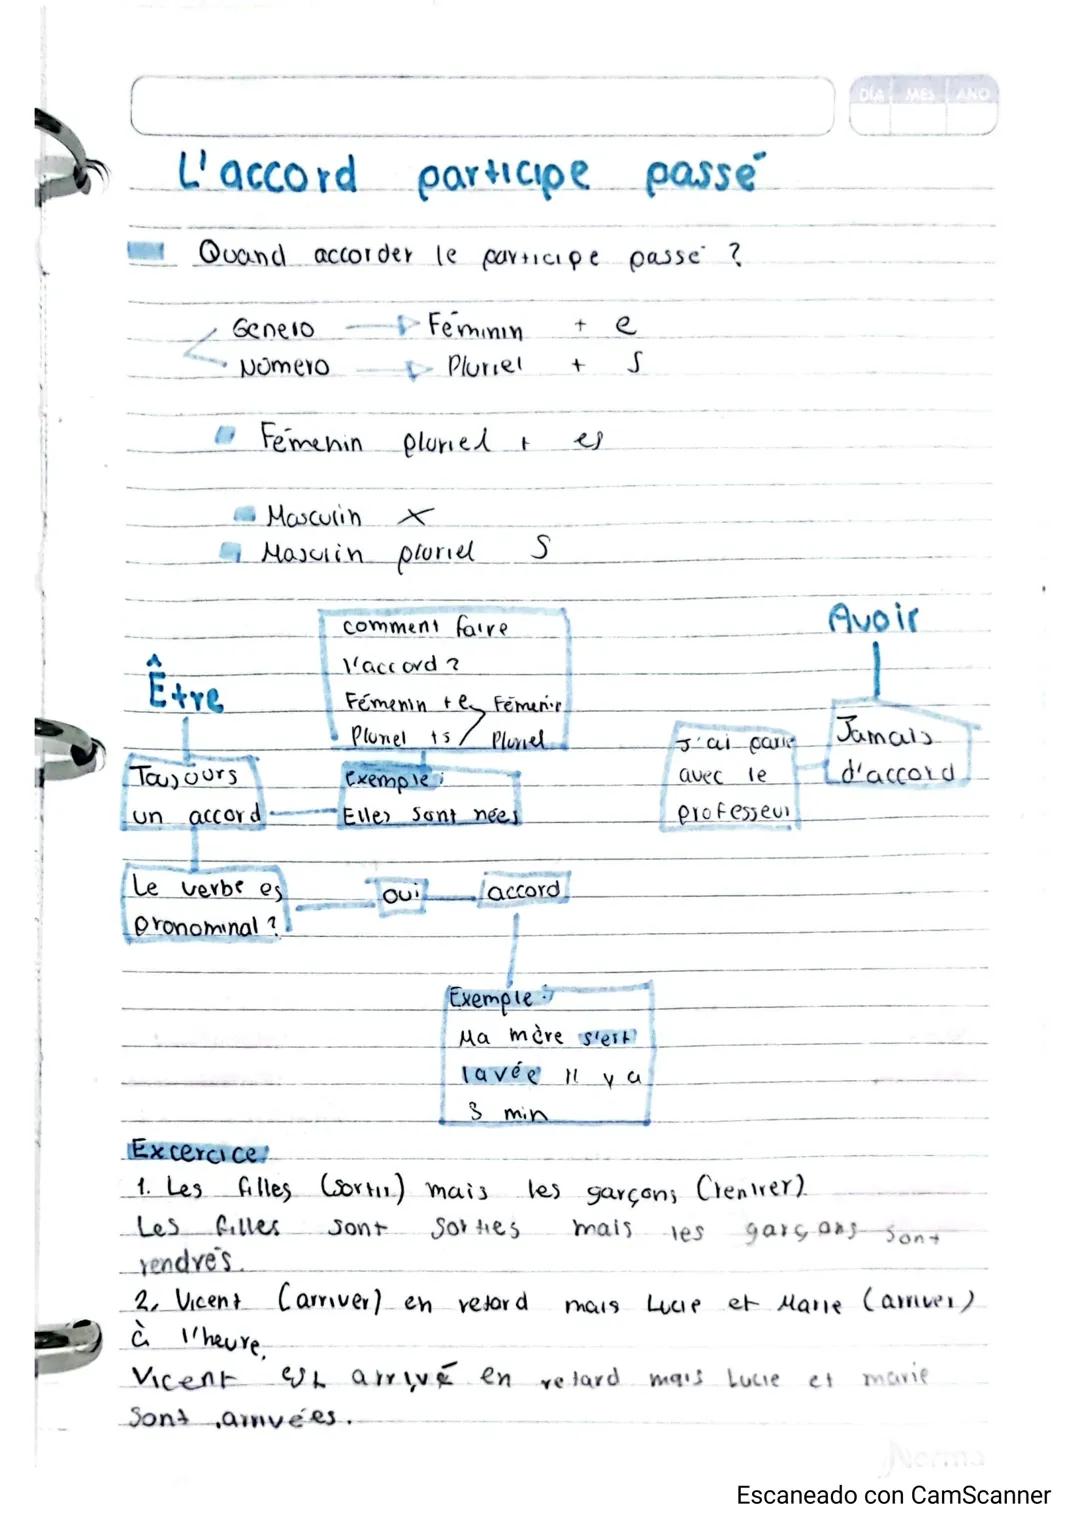 DÍA MES AÑO
L'accord participe passé
Quand accorder le participe passé ?
Genero Féminin + e
Número Pluriel + s
Femenin pluriel + es
Masculin X
Masculin pluriel S
Avoir
comment faire
l'accord ?
Fémenin + e Fémenin
Pluriel + s Pluriel
Être
Toujours
un accord
Exemple :
Elles sont nées
J'ai parlé
avec le
professeur
Jamais
d'accord
Le verbe es
pronominal ?
oui
accord
Exemple :
Ma mère s'est
lavée Il y a
3 min
Excercice:
1. Les filles (sortir) mais les garçons (rentrer).
Les filles sont sorties mais les garçons sont
rendrés.
2. Vicent (arriver) en retard mais Lucie et Marie (arriver)
à l'heure.
Vicent est arrivé en retard mais Lucie et marie
sont arrivées.
Norma
Escaneado con CamScanner